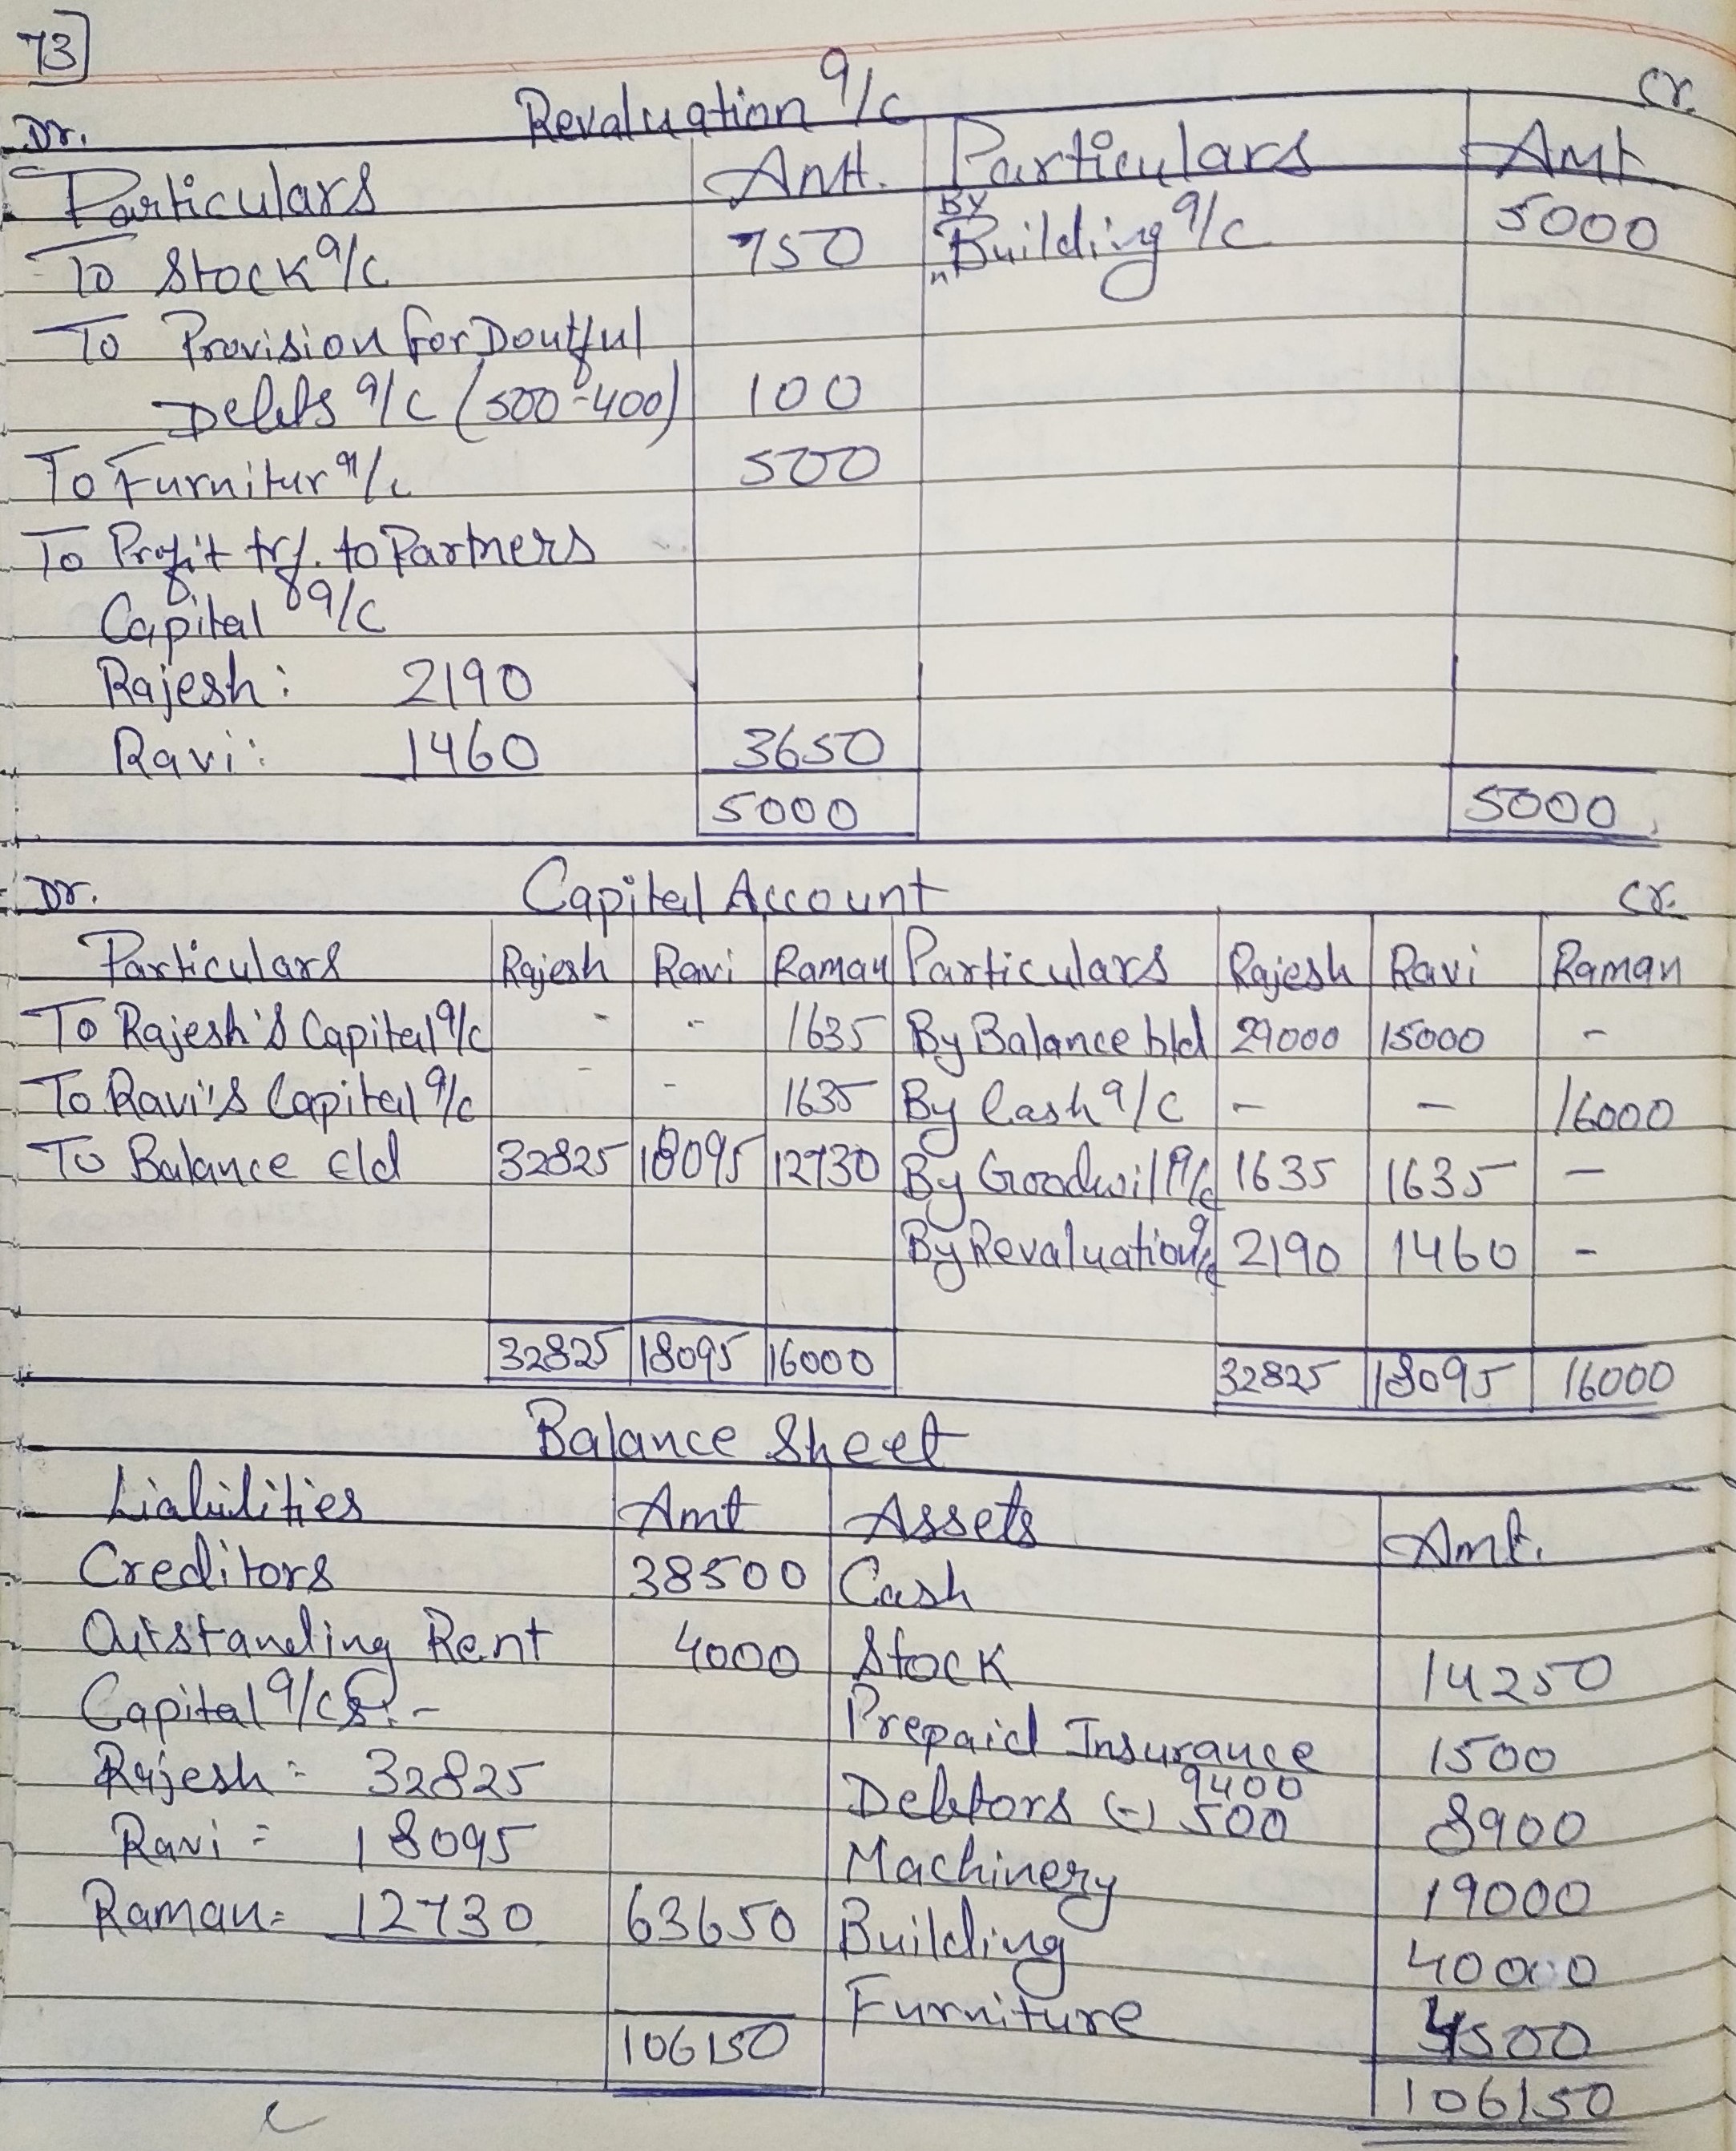 73
Revaluation a/c
Dr. Cr.
Particulars Amt. Particulars Amt.
To Stock a/c 750 By Building a/c 5000
To Provision for Doutful
Debts a/c (500-400) 100
To Furnitur a/c 500
To Profit trf. to Partners
Capital a/c
Rajesh: 2190
Ravi: 1460 3650
5000 5000
Dr. Capital Account Cr.
Particulars Rajesh Ravi Raman Particulars Rajesh Ravi Raman
To Rajesh's Capital a/c - - 1635 By Balance b/d 29000 15000 -
To Ravi's Capital a/c - - 1635 By Cash a/c - - 16000
To Balance c/d 32825 18095 12730 By Goodwill a/c 1635 1635 -
By Revaluation a/c 2190 1460 -
32825 18095 16000 32825 18095 16000
Balance Sheet
Liabilities Amt Assets Amt.
Creditors 38500 Cash
Outstanding Rent 4000 Stock 14250
Capital a/cs:- Prepaid Insurance 1500
9400
Rajesh = 32825 Debtors (-) 500 8900
Ravi = 18095 Machinery 19000
Raman = 12730 63650 Building 40000
Furniture 4500
106150 106150